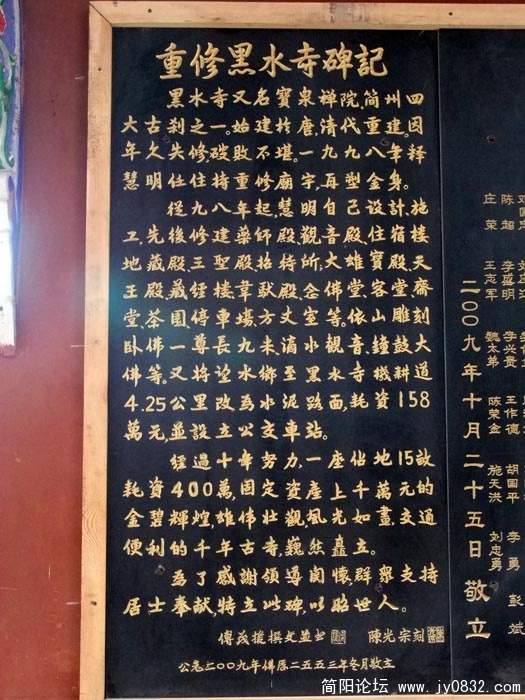 重修黑水寺碑記
黑水寺又名寶泉禅院,简州四
大古剎之一。始建於唐,清代重建。因
年久失修破敗不堪。一九九八年释
慧明任住持重修廟宇,再塑金身。
從九八年起,慧明自己設計,施
工,先後修建藥師殿觀音殿住宿楼
地藏殿三聖殿接待所,大雄寶殿、天
王殿、藏经樓、韋馱殿、念佛堂、客堂、齋
堂、茶園、停車場方丈室等。依山雕刻
卧佛一尊長九米,滴水觀音、鐘鼓大
佛等。又将望水鄉至黑水寺機耕道
4.25公里改為水泥路面,耗資158
萬元並設立公交車站。
經過十年努力,一座佔地15畝
耗資400萬,固定資產上千萬元的
金碧輝煌,雄伟壮觀風光如畫交通
便利的千年古寺,巍然矗立。
為了感謝領導関懷群眾支持
居士奉献,特立此碑,以昭世人。
傅茂援撰文並书 陳光宗刻
公元二00九年佛曆二五五三年冬月敬立
庄荣 王志军 魏太弟 陈荣金 施天洪 刘忠勇 彭斌
陈超 李盛明 李兴贵 王作德 胡国平 李勇
二00九年十月二十五日敬立
简阳论坛 : www.jy0832.com